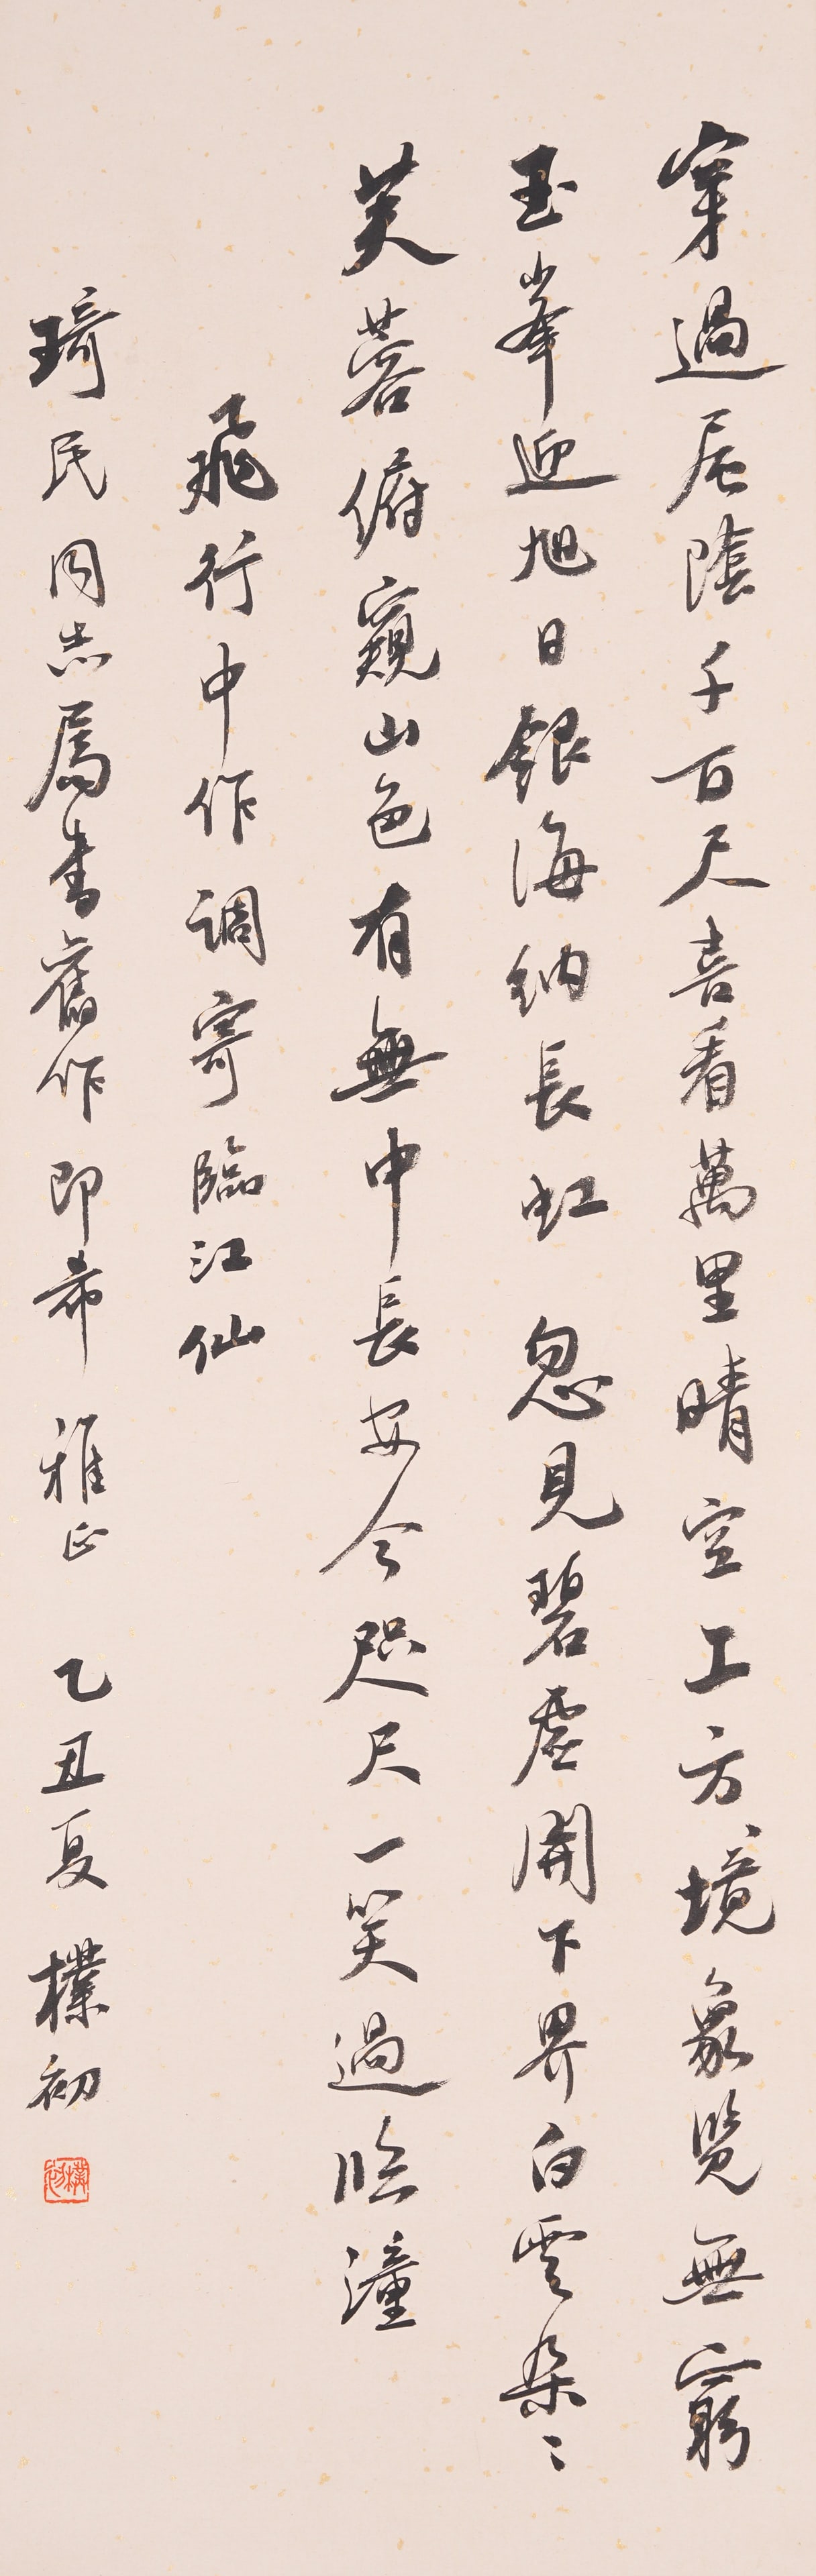 穿過层陰千百尺喜看萬里晴空上方境象覽無窮
玉峯迎旭日銀海納長虹 忽見碧虛開下界白雲朵〻
芙蓉俯窺山色有無中長安今咫尺一笑過臨潼
飛行中作調寄臨江仙
琦民同志屬書舊作即希 雅正 乙丑夏 樸初
樸初